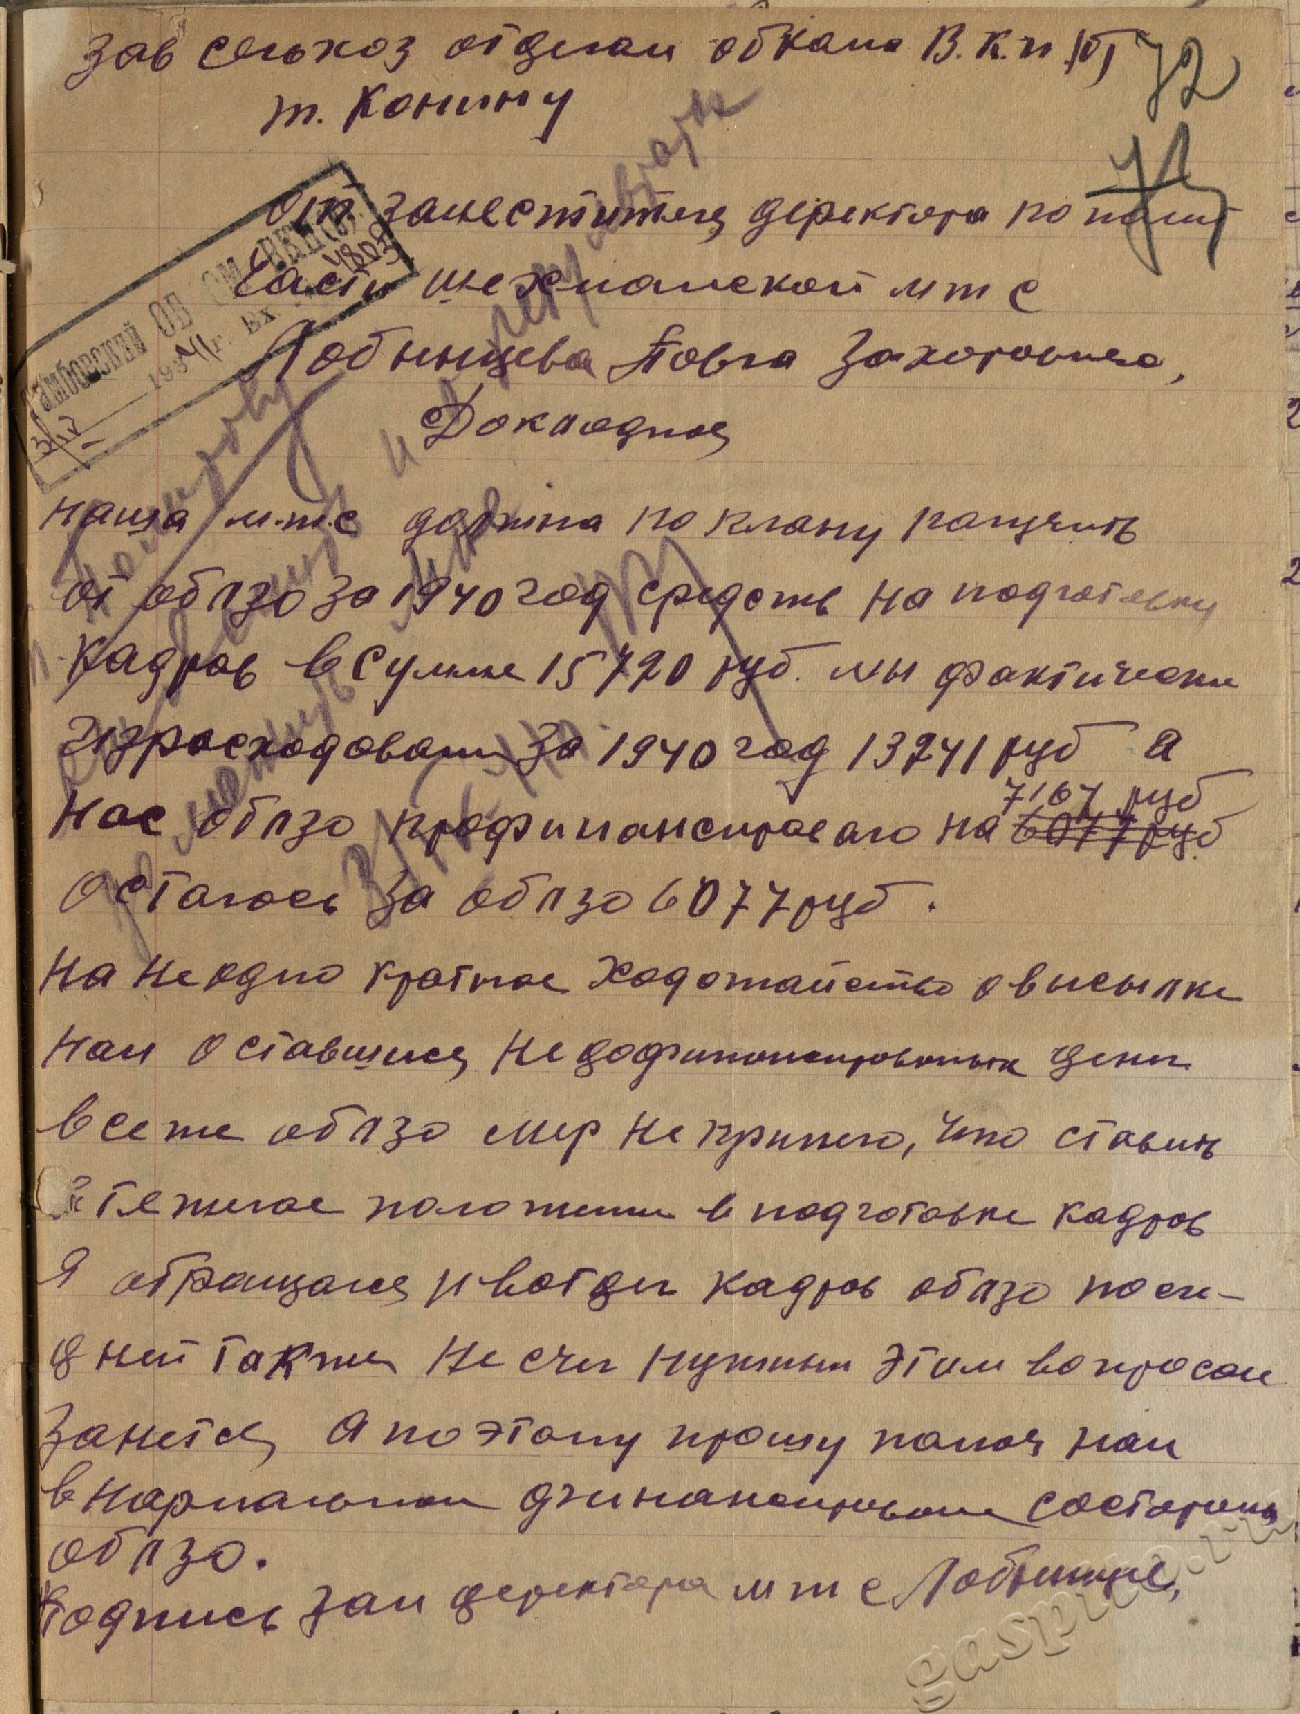 Зав сельхоз отделам обкама В.К.п/б/
72
т. Конину
от заместителя деректора по полит
Части шехманской мтс
Лобынцева Павла Захаровича,
Тамбовский ОБКОМ ВКП(б)
Докладная
наша м.т.с должна по плану палучить
от облзо за 1940 год средств на подготовку
Кадров в сумме 15720 руб. мы фактически
израсходовали за 1940 год 13241 руб а
7167 руб
нас облзо профинансировало на 6077 руб
осталось за облзо 6077 руб.
На неоднократное ходатайство о высылке
нам оставшися недофинансированых денег
все же облзо мер не приняло, что ставит
в тяжелое положение в подготовке кадров
Я обращался и в отдел кадров облзо посл-
дний также не счел нужным этим вопросом
Занятся, А поэтому прошу помоч нам
в нармальном финансировании состороны
облзо.
Подпись зам деректора мтс Лобынцев,
gaspito.ru